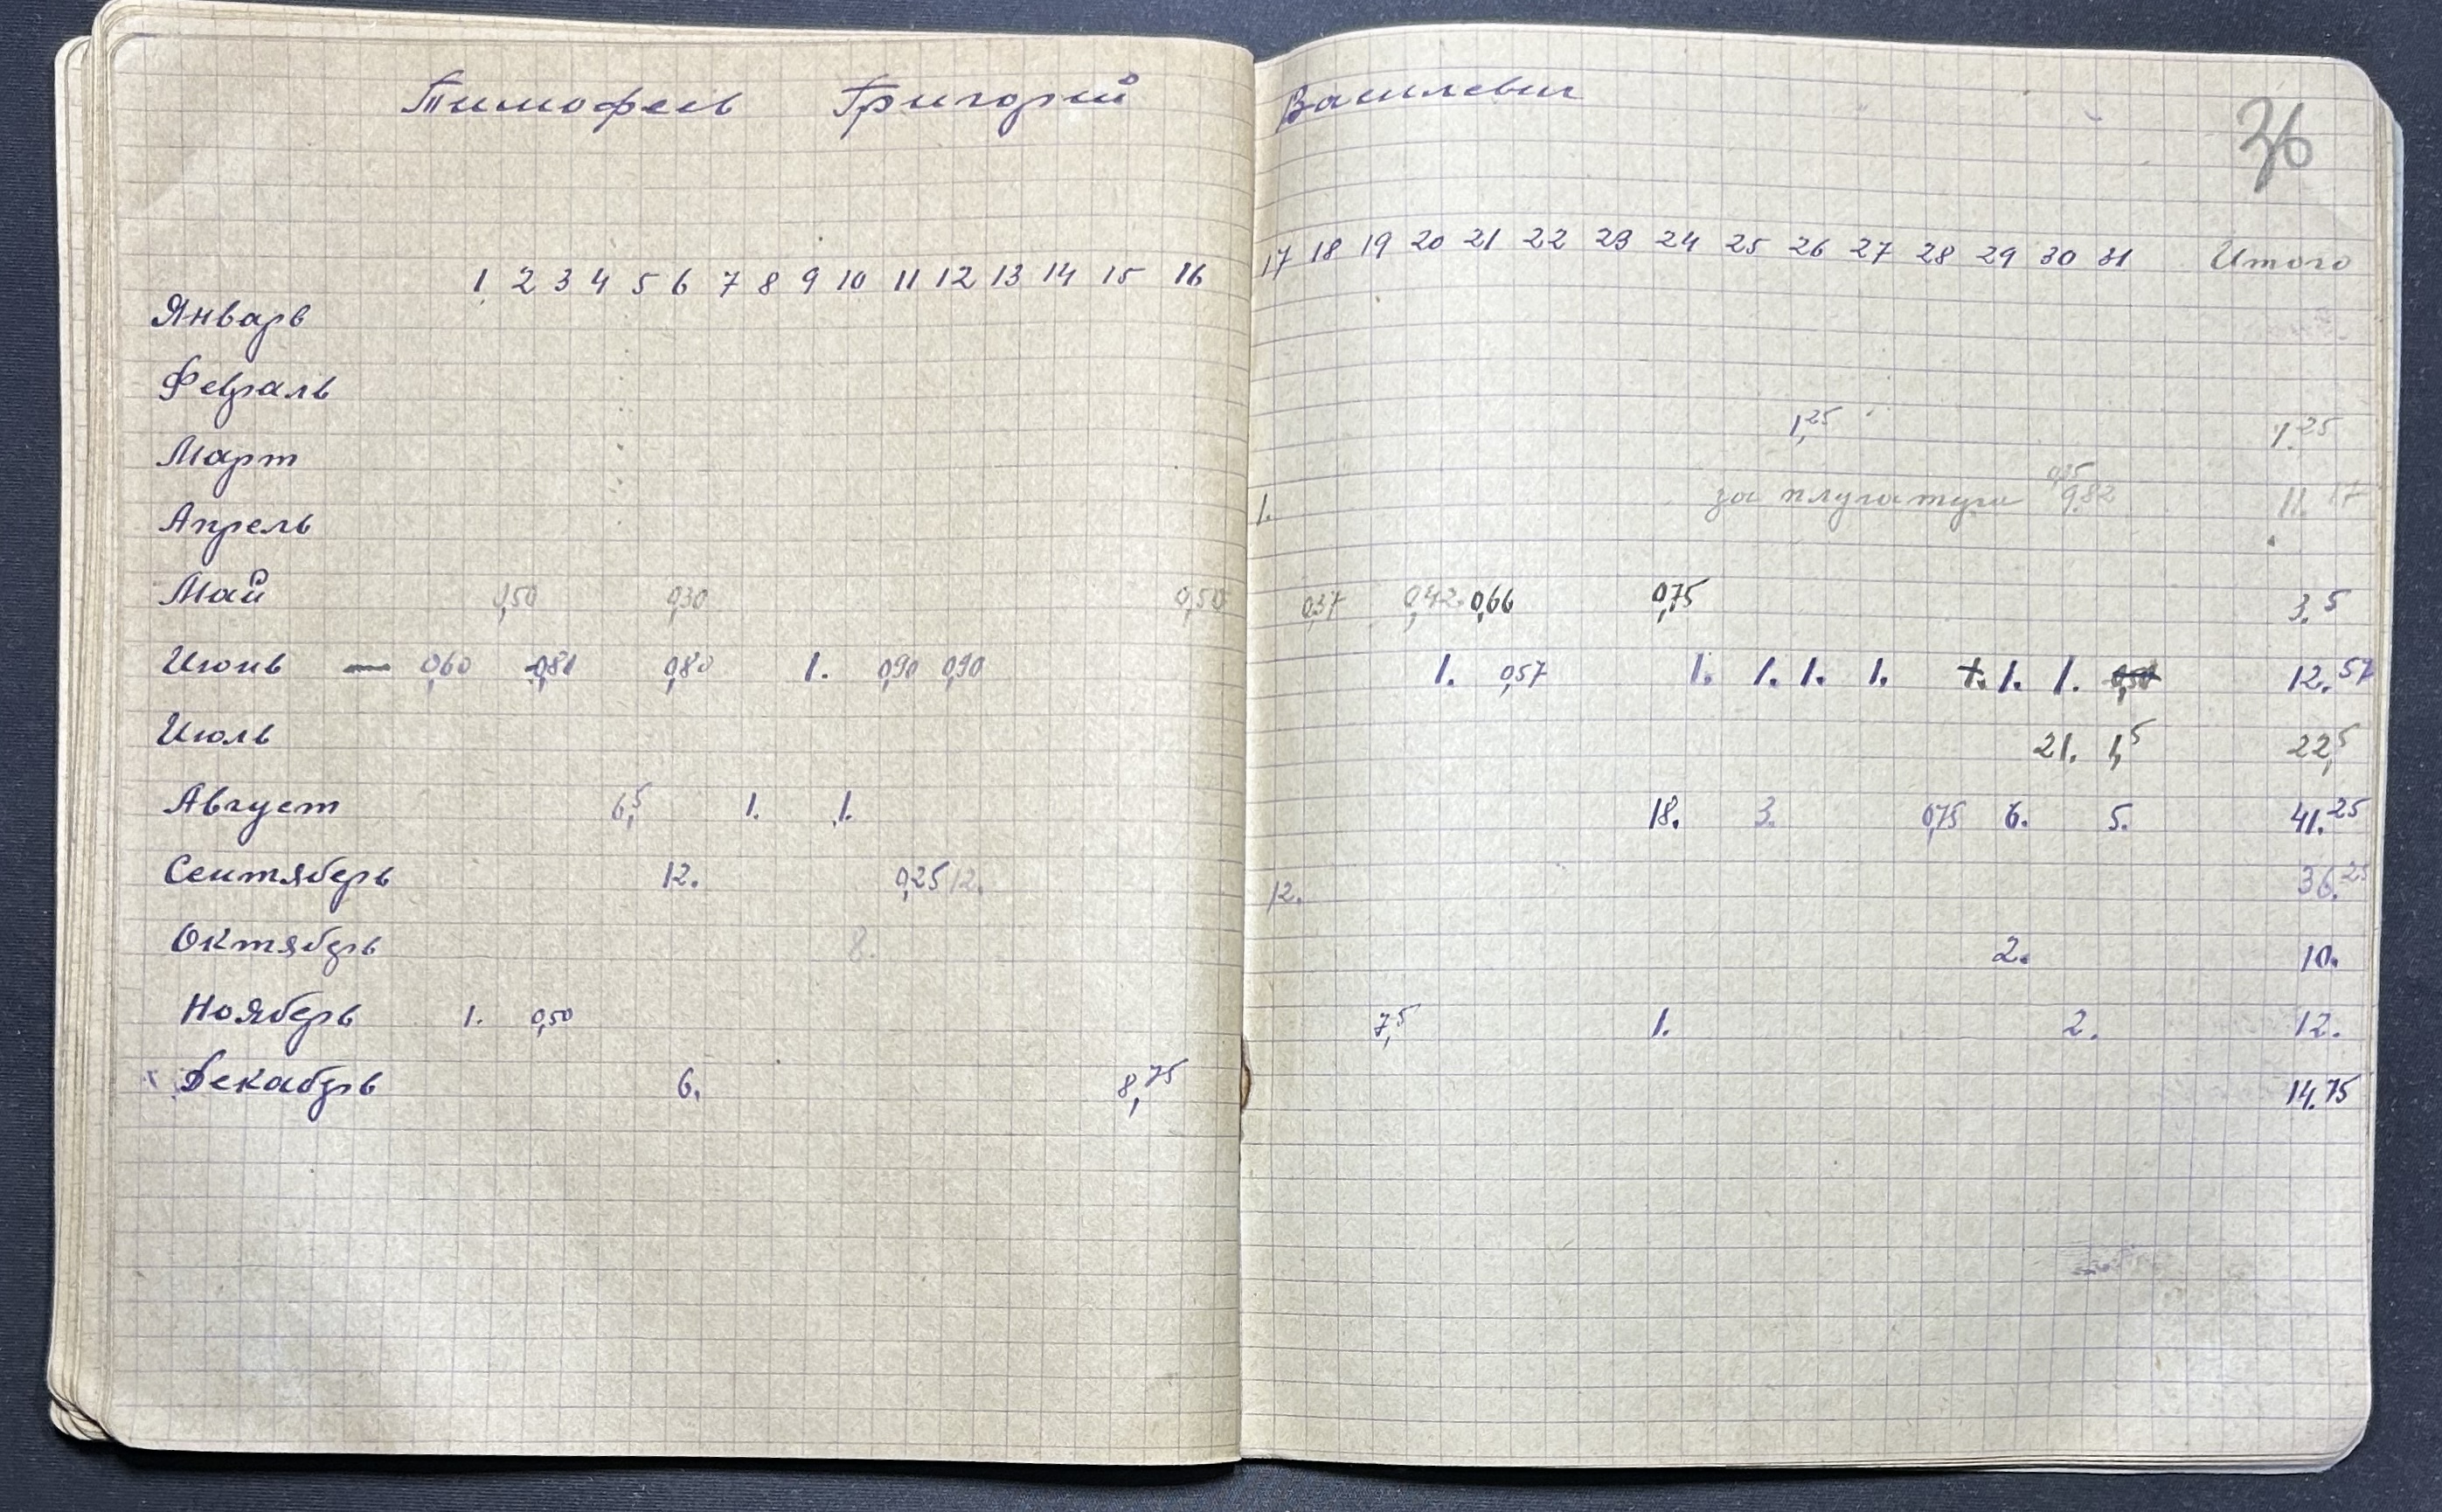 Тимофеев Григорий Василевич
36
1 2 3 4 5 6 7 8 9 10 11 12 13 14 15 16 17 18 19 20 21 22 23 24 25 26 27 28 29 30 31 Итого
Январь
Февраль
Март 1,25 1.25
Апрель 1. за плугатуга 9.82 11.17
Май 0,50 0,30 0,50 0,37 0,42 0,66 0,75 3.5
Июнь — 0,60 0,80 1. 0,90 0,90 1. 0,57 1. 1. 1. 1. 1. 1. 1. 0,50 12.57
Июль 21. 1,5 22,5
Август 6,5 1. 1. 18. 3. 0,75 6. 5. 41.25
Сентяберь 12. 0,25 12. 12. 36.25
Октябрь 8. 2. 10.
Нояберь 1. 0,50 7,5 1. 2. 12.
Декабрь 6. 8,75 14.75